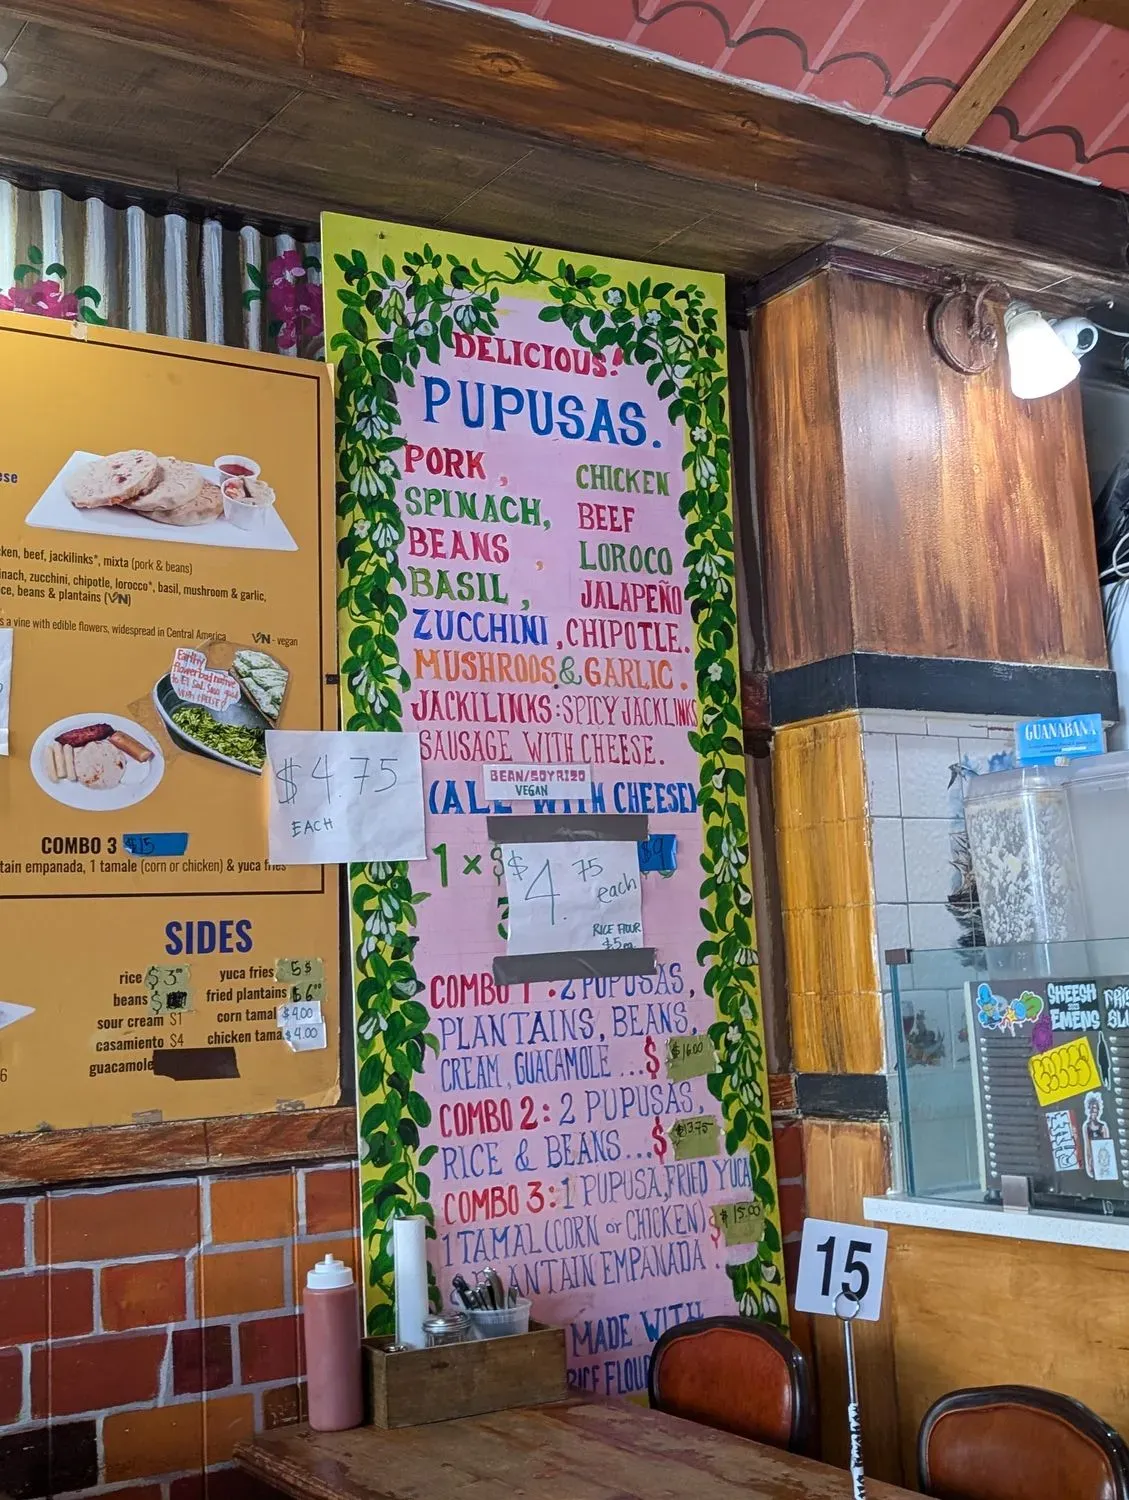 ese
ken, beef, jackilinks*, mixta (pork & beans)
nach, zucchini, chipotle, lorocco*, basil, mushroom & garlic,
ce, beans & plantains (VN)
s a vine with edible flowers, widespread in Central America
VN - vegan
COMBO 3 $15
tain empanada, 1 tamale (corn or chicken) & yuca fries
SIDES
rice $3.00
beans $
sour cream $1
casamiento $4
guacamole
yuca fries 5$
fried plantains $6.00
corn tamal $4.00
chicken tama $4.00
$4.75
EACH
DELICIOUS!
PUPUSAS.
PORK, CHICKEN
SPINACH, BEEF
BEANS, LOROCO
BASIL, JALAPEÑO
ZUCCHINI, CHIPOTLE.
MUSHROOS & GARLIC.
JACKILINKS: SPICY JACKLINKS
SAUSAGE WITH CHEESE.
BEAN/SOYRIZO
VEGAN
(ALL WITH CHEESE)
1 x $
$9
$4.75
each
RICE FLOUR
$5 ea.
COMBO 1: 2 PUPUSAS,
PLANTAINS, BEANS,
CREAM, GUACAMOLE ...$ $16.00
COMBO 2: 2 PUPUSAS,
RICE & BEANS...$ $13.75
COMBO 3: 1 PUPUSA, FRIED YUCA
1 TAMAL (CORN or CHICKEN) $ $15.00
& PLANTAIN EMPANADA.
MADE WITH
RICE FLOUR
GUANABANA
SHEESH
EMENS
15